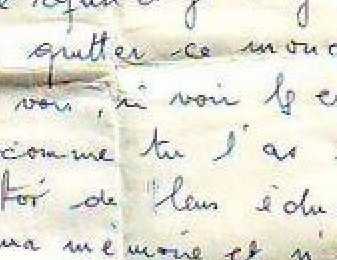 quitter ce mond
vous, ni voir les en
comme tu l'as
foi de leur édu
ma mémoire et n'